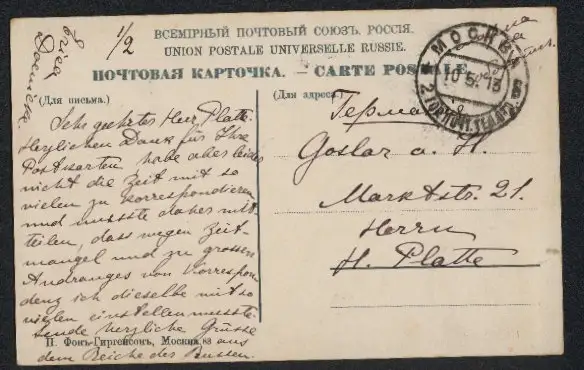 1/2
ВСЕМІРНЫЙ ПОЧТОВЫЙ СОЮЗЪ. РОССІЯ.
UNION POSTALE UNIVERSELLE RUSSIE.
ПОЧТОВАЯ КАРТОЧКА. — CARTE POSTALE
(Для письма.)
Sehr geehrtes Herr Platte.
Herzlichen Dank für Ihre
Postkarten habe aber leider
nicht die Zeit mit so
vielen zu korrespondieren
und musste daher mit-
teilen, dass wegen Zeit-
mangel und zu grossen
Andranges von Korrespon
denz ich dieselbe mit so
vielen einstellen musste.
sende herzliche Grüsse aus
dem Reiche der Russen.
П. Фонъ-Гиргенсонъ, Москва 83
(Для адреса.)
МОСКВА
10 5 13
Герма
Goslar a. H.
Marktstr. 21.
Herrn
H. Platte